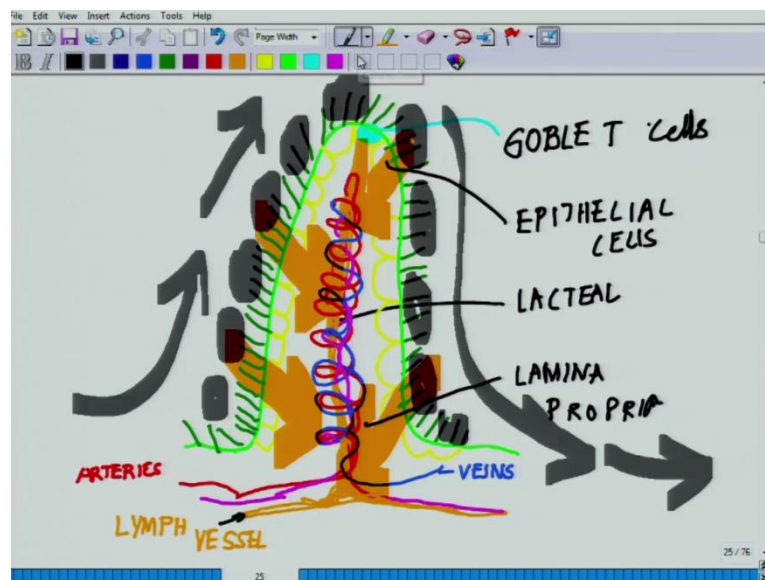 File Edit View Insert Actions Tools Help
Page Width
B I
GOBLE T cells
EPITHELIAL
CELLS
LACTEAL
LAMINA
PROPRIA
ARTERIES
VEINS
LYMPH VESSEL
25 / 76
25